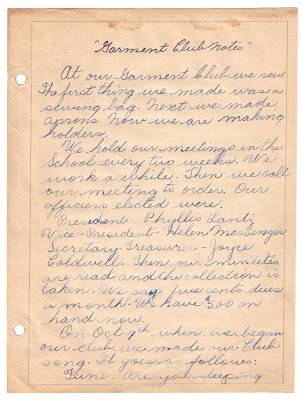 "Garment Club Notes"
At our Garment Club we sew.
The first thing we made was a
sewing bag. Next we made
aprons. Now we are making
holders.
We hold our meetings in the
School every two weeks. We
work a while. Then we call
our meeting to order. Our
officers elected were.
President - Phyllis Lantz
Vice-President - Helen Messenger
Secretary-Treasurer - Joyce
Coldwell. Then our minutes
are read and the collection is
taken. We say five cents dues
a month. We have $3.00 on
hand now.
On Oct 9th when we began
our club we made our Club
song. It goes as follows:
Tune: Are you sleeping